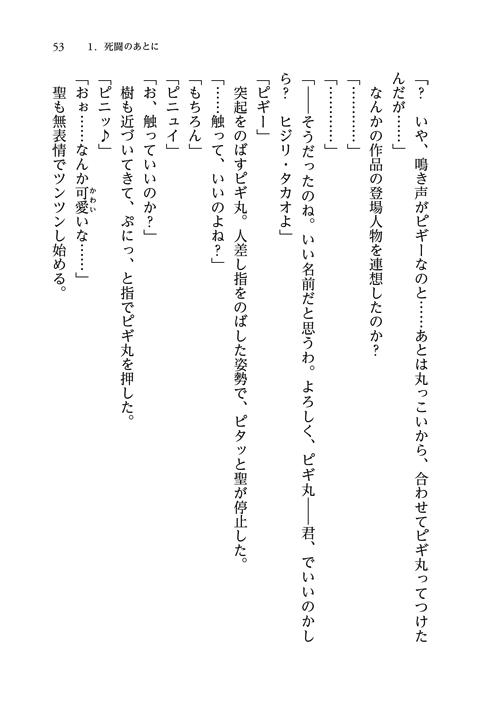 53　1．死闘のあとに
「？　いや、鳴き声がピギーなのと……あとは丸っこいから、合わせてピギ丸ってつけた
んだが……」
　なんかの作品の登場人物を連想したのか？
「…………」
「…………」
「――そうだったのね。いい名前だと思うわ。よろしく、ピギ丸――君、でいいのかし
ら？　ヒジリ・タカオよ」
「ピギー」
　突起をのばすピギ丸。人差し指をのばした姿勢で、ピタッと聖が停止した。
「……触って、いいのよね？」
「もちろん」
「ピニュイ」
「お、触っていいのか？」
　樹も近づいてきて、ぷにっ、と指でピギ丸を押した。
「ピニッ♪」
「おぉ……なんか可愛いな……」
かわい
　聖も無表情でツンツンし始める。